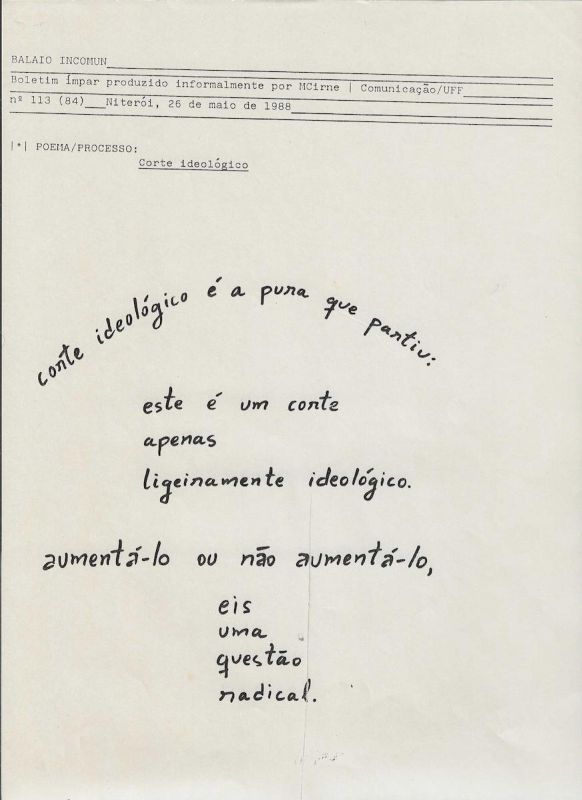 BALAIO INCOMUN
Boletim Ímpar produzido informalmente por MCirne | Comunicação/UFF
nº 113 (84) Niterói, 26 de maio de 1988
|*| POEMA/PROCESSO:
Corte ideológico
corte ideológico é a pura que partiu:
este é um corte
apenas
ligeiramente ideológico.
aumentá-lo ou não aumentá-lo,
eis
uma
questão
radical.